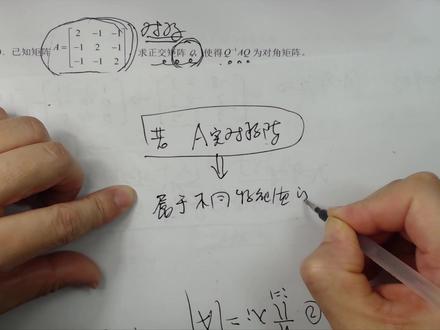 对称
已知矩阵 A = [2 -1 -1; -1 2 -1; -1 -1 2], 求正交矩阵 Q, 使得 Q⁻¹AQ 为对角矩阵。
若 A实对称阵
⇓
属于不同特征值的
② ∏ λi = |A|